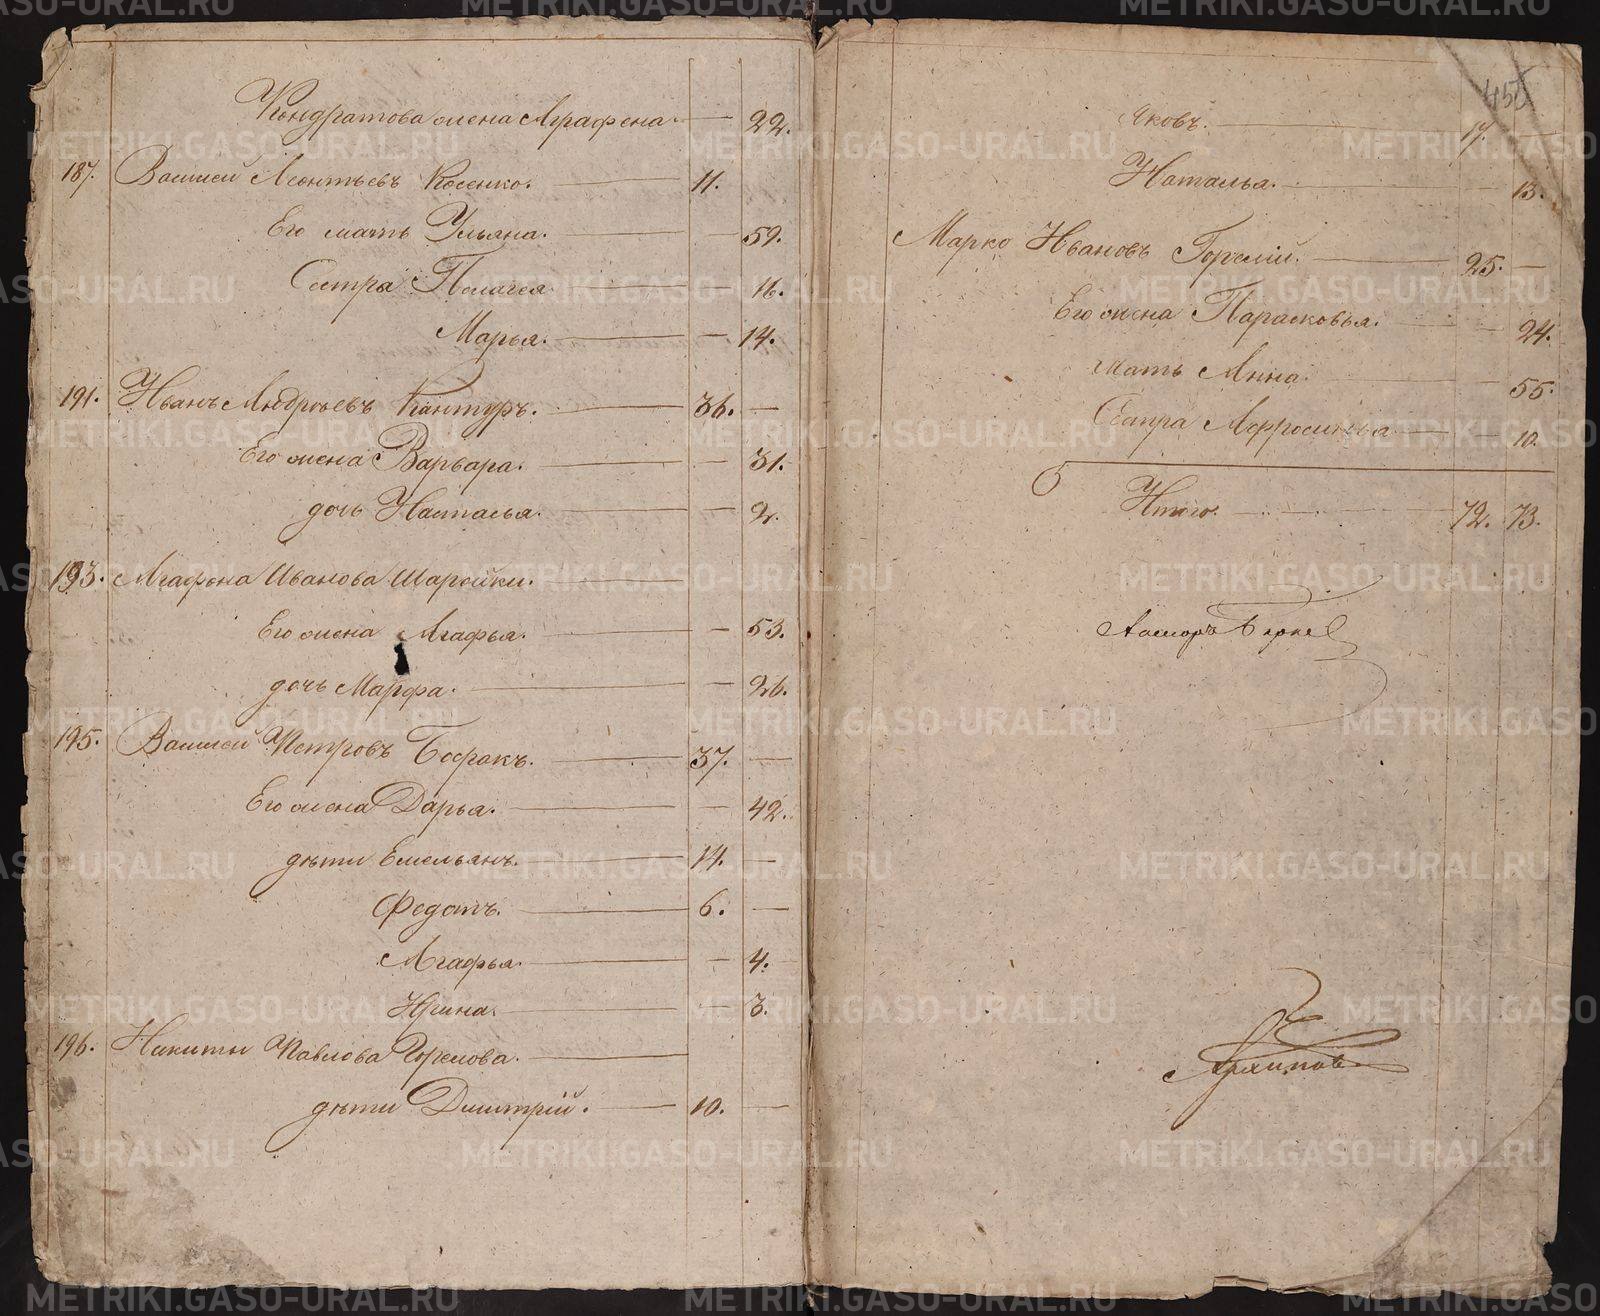 Кондратова жена Аграфена. — 22.
187. Василей Леонтьевъ Косенко. — 11.
Его мать Ульяна. — 59.
Сестра Пелагея. — 16.
Марья. — 14.
191. Иванъ Андреевъ Кантуръ. — 36. —
Его жена Варвара. — 31.
дочь Настасья. — 2.
193. Агафона Иванова Шарейки. —
Его жена Агафья. — 53.
дочь Марфа. — 26.
195. Василей Петровъ Бафракъ. — 37. —
Его жена Дарья. — 42.
дѣти Емельянъ. — 14. —
Федотъ. — 6. —
Агафья. — 4.
Ирина. — 3.
196. Никиты Павлова Горелова. —
дѣти Дмитрій. — 10. —
450
Яковъ. — 17. —
Наталья. — 13.
Марко Ивановъ Горелій. — 25. —
Его жена Парасковья. — 24.
мать Анна. — 55.
Сестра Афросинья — 10.
Итого. — 72. 73.
Архипов
METRIKI.GASO-URAL.RU